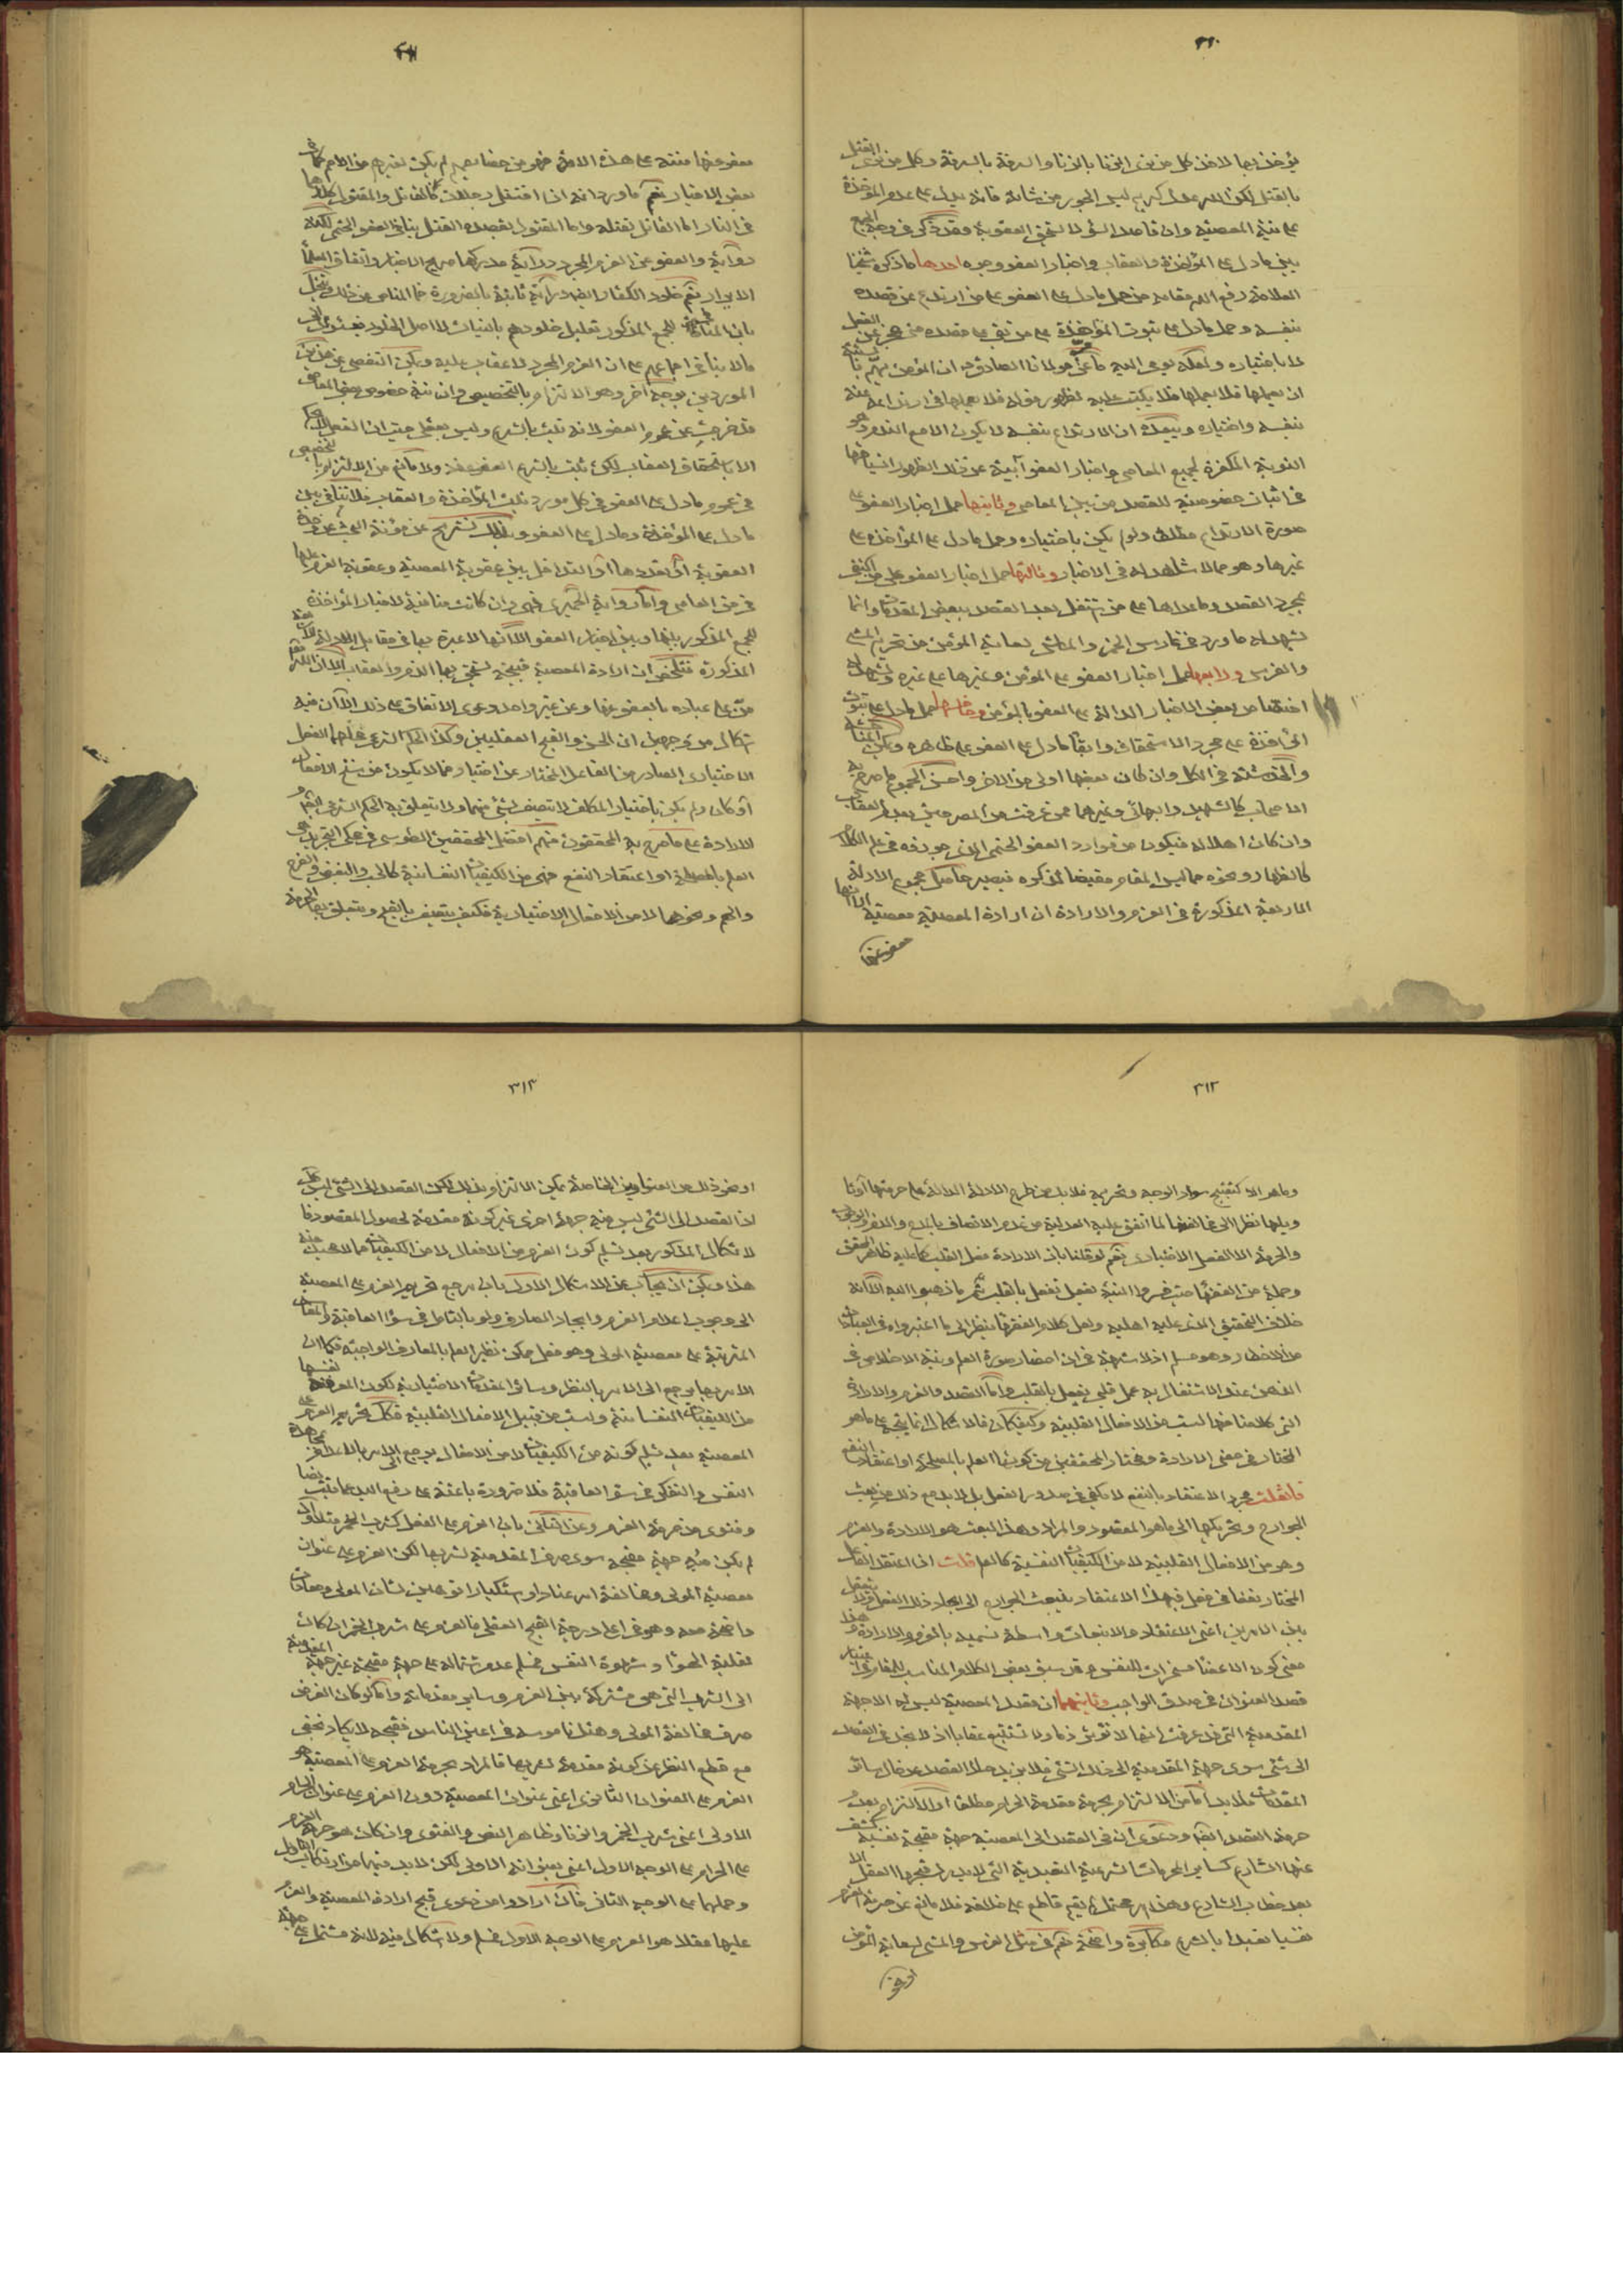 ٣١٠
يؤخذ بها لاخذ كل من نوى الزنا بالزنا والسرقة بالسرقة وكل من نوى القتل
بالقتل لكن الله عدل كريم ليس الجور من شأنه فانه يدل على عدم المؤاخذة
على نية المعصية وان قاصد السوء لا يستحق العقوبة وقد ذكر في وجه الجمع
بين ما دل على المؤاخذة والعقاب واخبار العفو وجوه احدها ما ذكره شيخنا
العلامة رفع الله مقامه من حمل ما دل على العفو على من ارتدع عن قصده
بنفسه وحمل ما دل على ثبوت المؤاخذة على من بقي على قصده حتى عجز عن الفعل
لا باختياره
ان يعملها فلا يعملها فلا يكتب عليه
بنفسه واختياره
التوبة المكفرة لجميع المعاصي واخبار العفو آبية عن ذلك
في اثبات خصوصية للقصد من بين المعاصي وثانيها حمل اخبار العفو على
صورة الارتداع مطلقا ولو لم يكن باختياره وحمل ما دل على المؤاخذة على
غيرها وهو مما لا شاهد له في الاخبار وثالثها حمل اخبار العفو على من اكتفى
بمجرد القصد وما عداها على من اشتغل بعد القصد ببعض المقدمات وانما
يشهد له ما ورد في غارس الخمر والماشي لسعاية المؤمن من تحريم المشي
والغرس ورابعها حمل اخبار العفو على المؤمن وغيرها على غيره
اختصاص بعض الاخبار الدالة على العفو بالمؤمن وخامسها حمل ما دل على ثبوت
المؤاخذة على مجرد الاستحقاق وابقاء ما دل على العفو على ظاهره ويمكن المناقشة
والخدشة في الكل وان كان بعضها اولى من الاخر واحسن الجموع ما صرح به
الاصحاب كالشهيد والبهائي وغيرهما
وان كان اهلا له فيكون من موارد العفو الحتمي الذي جوزه في علم الكلام
كالظهار ونحوه مما ليس المقام مقتضيا لذكره فيصير حاصل مجموع الادلة
الاربعة المذكورة في العزم والارادة ان ارادة المعصية معصية الا انها
معفو عنها
معفو عنها منته على هذه الامة فهو من خصايصهم لم يكن لغيرهم من الامم
بعض الاخبار نعم ما ورد انه اذا اقتتل رجلان فالقاتل والمقتول كلاهما
في النار اما القاتل بقتله واما المقتول بقصده القتل ينافي العفو الحتمي لكنه
رواية والعفو عن العزم المجرد دراية مدركها صريح الاخبار واتفاق العلماء
الابرار نعم خلود الكفار
للجمع المذكور تعليل خلودهم بالنيات لا اصل الخلود
ما لا ينافي اجماعهم على ان العزم المجرد لا عقاب عليه ويمكن التفصي عن هذين
الموردين بوجه آخر وهو الالتزام بالتخصيص وان نية خصوص بعض المعاصي
قد خرجت عن عموم العفو لانه ثابت بالشرع وليس بعقلي
الاستحقاق العقاب لكن ثبت بالشرع العفو عنه ولا مانع من الالتزام بالتخصيص
في عموم ما دل على العفو في كل مورد ثبت المؤاخذة والعقاب فلا تنافي بين
ما دل على المؤاخذة وما دل على العفو وبذلك نستريح عن مؤنة البحث عن وحدة
العقوبة او تعددها او التداخل بين عقوبة المعصية وعقوبة العزم عليها
في حق العاصي
للجمع المذكور بينها وبين اخبار العفو الا انها لا عبرة بها في مقابل الادلة
المذكورة فتلخص ان ارادة المعصية قبيحة يستحق بها الذم والعقاب الا ان الله
من على عباده بالعفو عنها وعن غير واحد دعوى الاتفاق على ذلك الا ان فيه
اشكالا من وجهين ان الحسن والقبح العقليين وكذا الحكم الشرعي محلهما الفعل
الاختياري الصادر من الفاعل المختار عن اختيار فما لا يكون من سنخ الافعال
او كان ولم يكن باختيار المكلف لا يتصف بشيء منهما ولا يتعلق به الحكم الشرعي
الارادة على ما صرح به المحققون منهم افضل المحققين الطوسي في محكي التجريد هي
العلم بالمصلحة او اعتقاد النفع فهي من الكيفيات النفسانية كالحب والبغض والفرح
والهم ونحوها لا من الافعال الاختيارية فكيف يتصف بالقبح ويتعلق بها الحرمة
٣١٢
وما هو الا كتقبيح سواد الوجه وتحريمه فلا بد من طرح الادلة الدالة على حرمتها او تا
ويلها نظرا الى مخالفتها لما اتفق عليه العدلية من عدم الاتصاف بالمدح والذم
والحرمة الا الفعل الاختياري نعم لو قلنا بان الارادة فعل القلب كما عليه ظاهر
وجملة من الفقهاء حيث فسروا النية بفعل تفعل بالقلب ثم ما ذهبوا اليه الا انه
خلاف التحقيق الذي عليه اهله ولعل كلام الفقهاء ينظر الى ما اعتبروه في العبادات
من الاخطار وهو مسلم اذ لا شبهة في ان احضار صورة العلم ونية الاخلاص في
الذهن عند الاشتغال به عمل قلبي يفعل بالقلب واما القصد والعزم والارادة
التي كلامنا فيها ليست من الافعال القلبية وكيف كان فالاشكال انما يتجه على ما هو
المختار في معنى الارادة ومختار المحققين من كونها العلم بالمصلحة او اعتقاد النفع
فان قلت مجرد الاعتقاد بالنفع لا يكفي في صدور الفعل بل لا بد مع ذلك من بعث
الجوارح وتحريكها الى ما هو المقصود والمراد وهذا البعث هو الارادة والعزم
وهو من الافعال القلبية لا من الكيفيات النفسية كالعلم قلت اذا اعتقد الفاعل
المختار نفعا في فعل فبهذا الاعتقاد ينبعث الجوارح الى ايجاد ذلك الفعل ولا يعقل
بين الامرين اعني الاعتقاد والانبعاث واسطة تسميه بالعزم والارادة
معنى كون الاعضاء مسخرات للنفس وقد سبق بعض الكلام المناسب للمقام
قصد العنوان في صدق الواجب وثانيهما ان قصد المعصية ليس له الا جهة
المقدمية التي قد عرفت انها لا تورث ذما ولا تستتبع عقابا اذ لا نجد في القصد
الى شيء سوى جهة المقدمية الى ذلك الشيء فلا يزيد هذا القصد عن حال سائر
المقدمات فلا بد اما من الالتزام بحرمة مقدمة الحرام مطلقا او الالتزام بعدم
حرمة القصد ايضا ودعوى ان في القصد الى المعصية جهة مقبحة نفسية
عنها الشارع كساير المحرمات الشرعية التعبدية التي لا يدرك قبحها العقل الا
بعد خطاب الشارع وهذا امر محتمل لم يقم قاطع على خلافه فلا مانع عن حرمة العزم
نفسيا تعبدا بالشرع مكابرة واضحة نعم في مثل الغرس والمشي لسعاية المؤمن
او نحو
٣١٣
او نحو ذلك من العناوين الخاصة يمكن الالتزام بذلك لكن القصد الى الشيء ليس
اذ القصد الى الشيء ليس فيه جهة اخرى غير كونه مقدمة لحصول المقصود
لا شكال المذكور بعد تسليم كون العزم من الافعال لا من الكيفيات مما لا محيص عنه
هذا ويمكن ان يجاب عن الاشكال الاول بان مرجع تحريم العزم على المعصية
الى وجوب اعدام العزم وايجاد الصارف ولو بالتامل في سوء العاقبة والمفاسد
المترتبة على معصية المولى وهو فعل ممكن نظير العلم بالمعارف الواجبة فكما ان
الامر بها يرجع الى الامر بالنظر وسائر المقدمات الاختيارية لكون المعرفة نفسها
من الكيفيات النفسانية وليست من قبيل الافعال القلبية فكذلك تحريم العزم على
المعصية بعد تسليم كونه من الكيفيات لا من الافعال يرجع الى الامر
النفس والتفكر في سوء العاقبة
وعن الثاني بان العزم على الفعل كشرب الخمر مثلا وان
لم يكن فيه جهة مقبحة سوى صرف المقدمية لشربها لكن العزم على عنوان
معصية المولى ومخالفة امره عنادا واستكبارا توهين لشان المولى ومعاداة
واضحة معه وهو في اعلى درجة القبح العقلي فالعزم على شرب الخمر ان كان
لغلبة الهوى وشهوة النفس فسلم عدم اشتماله على جهة مقبحة غير جهة المقدمية
الى الشرب التي هي مشتركة بين العزم وساير مقدماته واما لو كان الغرض
صرف مخالفة المولى وهتك ناموسه في اعين الناس فقبحه لا يكاد يخفى
مع قطع النظر عن كونه مقدمة لشربها فالمراد بحرمة العزم على المعصية هو
العزم على العنوان الثانوي اعني عنوان المعصية دون العزم على عنوان الحرام
الاولي اعني شرب الخمر والزنا وظاهر النص والفتوى وان كان هو حرمة العزم
على الحرام على الوجه الاول اعني بعنوانه الاولي لكن لا بد فيها من ارتكاب التاويل
وحملهما على الوجه الثاني فان ارادوا من دعوى قبح ارادة المعصية والعزم
عليها عقلا هو العزم على الوجه الاول فسلم ولا اشكال فيه لانه مشتمل على جهة